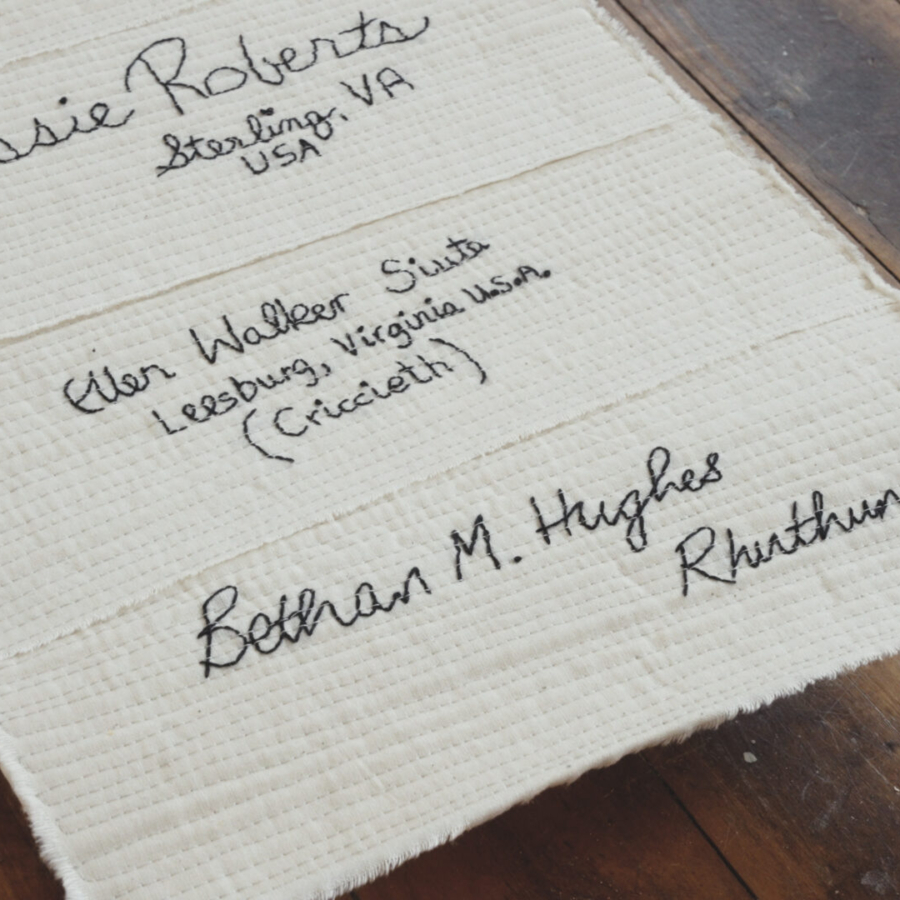 ssie Roberts
Sterling, VA
USA
Ellen Walker Siuta
Leesburg, Virginia U.S.A.
(Criccieth)
Bethan M. Hughes